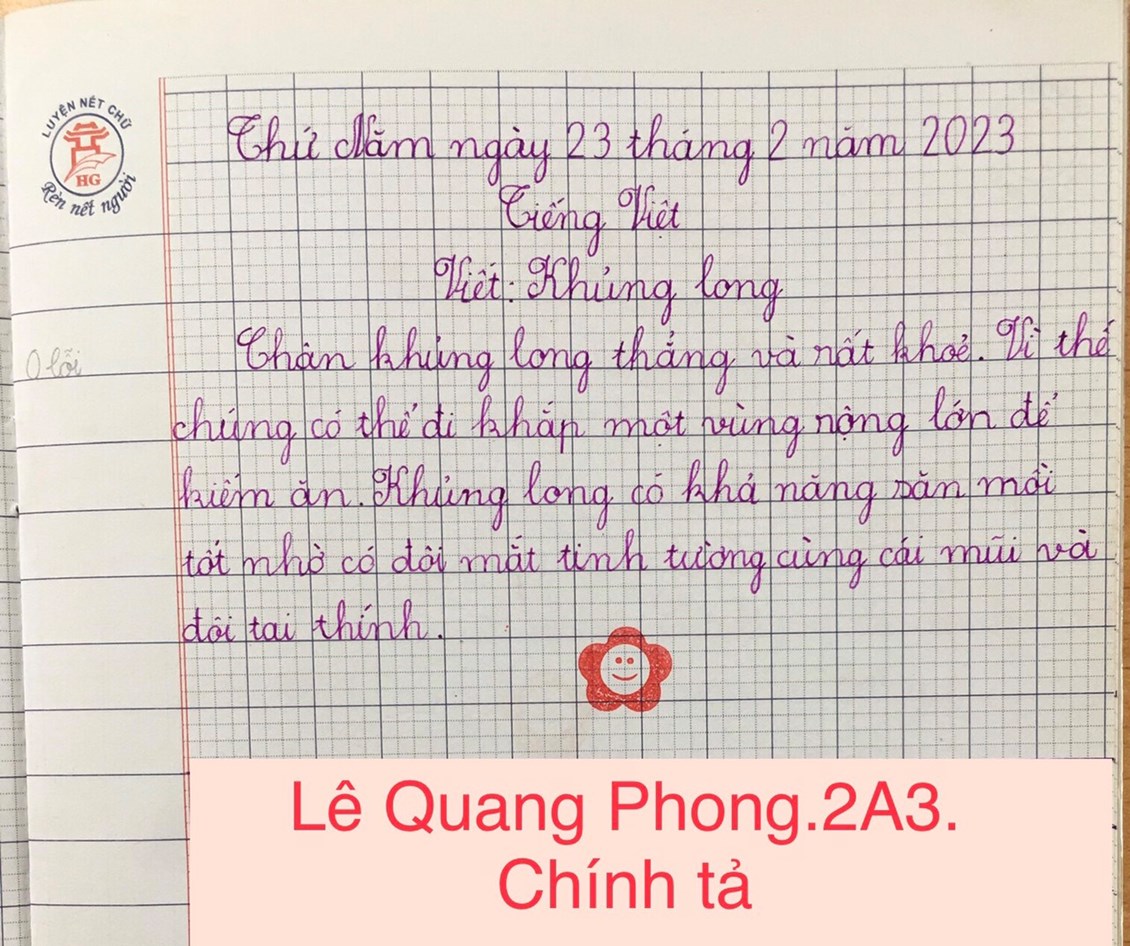 LUYỆN NÉT CHỮ
HG
Rèn nết người
Thứ Năm ngày 23 tháng 2 năm 2023
Tiếng Việt
Viết: Khủng long
0 lỗi
Chân khủng long thẳng và rất khoẻ. Vì thế
chúng có thể đi khắp một vùng rộng lớn để
kiếm ăn. Khủng long có khả năng săn mồi
tốt nhờ có đôi mắt tinh tường cùng cái mũi và
đôi tai thính.
Lê Quang Phong.2A3.
Chính tả